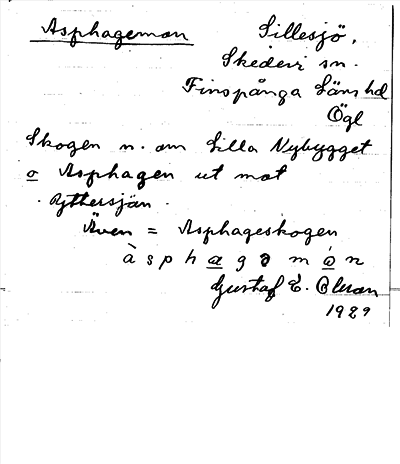 Asphagemon Sillesjö,
Skedevi sn.
Finspånga Läns hd
Ögl
Skogen n. om Lilla Nybygget
o Asphagen ut mot
Ryttersjön.
Även = Asphageskogen
à s p h a g ə m ò n
Gustaf E. Olsson
1929